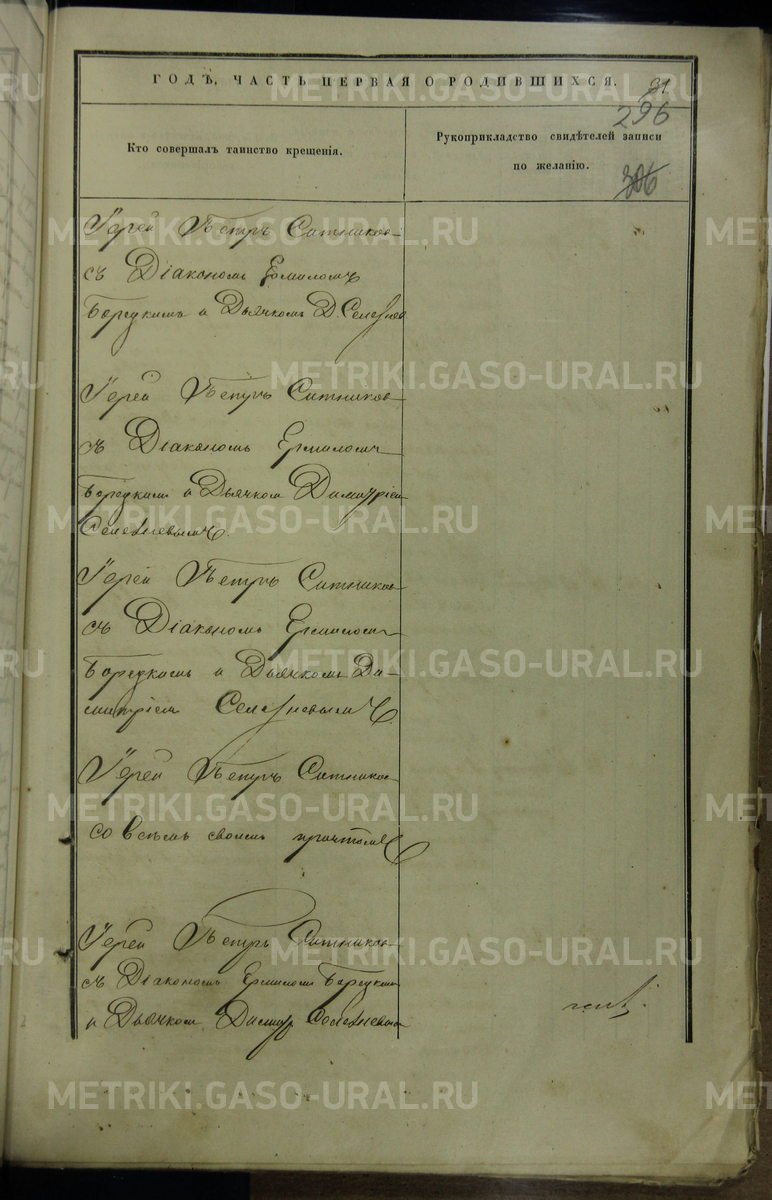 ГОДЪ, ЧАСТЬ ПЕРВАЯ О РОДИВШИХСЯ.
31
296
306
Кто совершалъ таинство крещенія.
Рукоприкладство свидѣтелей записи
по желанію.
Іерей Петръ Ситниковъ
съ Діакономъ Ермиломъ
и Дьячкомъ Д. Селезнев
Іерей Петръ Ситниковъ
съ Діакономъ Ермиломъ
и Дьячком Димитріем
Селезневымъ
Іерей Петръ Ситников
съ Діакономъ Ермилом
и Дьячкомъ Ди-
митріем Селезневымъ
Іерей Петръ Ситников
со всѣмъ своимъ причтомъ
Іерей Петръ Ситников
съ Діакономъ Ермилом
и Дьячком Димитр Селезневым
METRIKI.GASO-URAL.RU